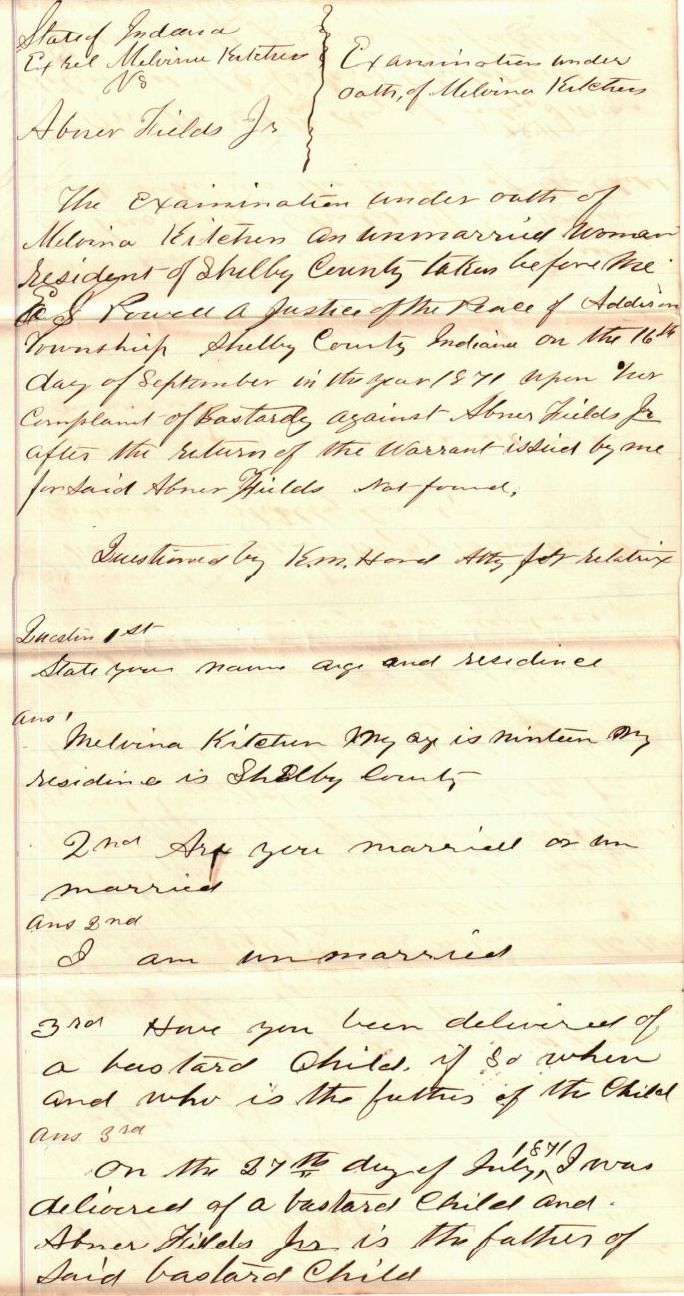 State of Indiana
Ex rel Melvina Kitchen
Vs
Abner Fields Jr
Examination under
oath, of Melvina Kitchen
The Examination under oath of
Melvina Kitchen an unmarried woman
resident of Shelby County taken before me
E S Powell a Justice of the Peace of Addison
Township Shelby County Indiana on the 16th
day of September in the year 1871 upon her
complaint of Bastardy against Abner Fields Jr
after the return of the Warrant issued by me
for said Abner Fields Not found,
Questioned by K.M. Hord Atty for relatrix
Question 1st
State your name age and residence
Ans 1
Melvina Kitchen My age is ninteen My
residence is Shelby County
2nd Are you married or un
married
Ans 2nd
I am unmarried
3rd Have you been delivered of
a bastard Child. if so when
and who is the father of the Child
Ans 3rd
On the 27th day of July, 1871 I was
delivered of a bastard Child and
Abner Fields Jr is the father of
said bastard Child